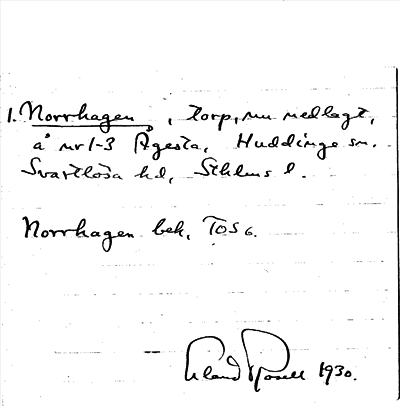 1. Norrhagen, torp, nu nedlagt,
å nr 1-3 Ågesta, Huddinge sn.
Svartlösa hd, Sthlms l.
Norrhagen bek, TOS 6.
Erland Rosell 1930.